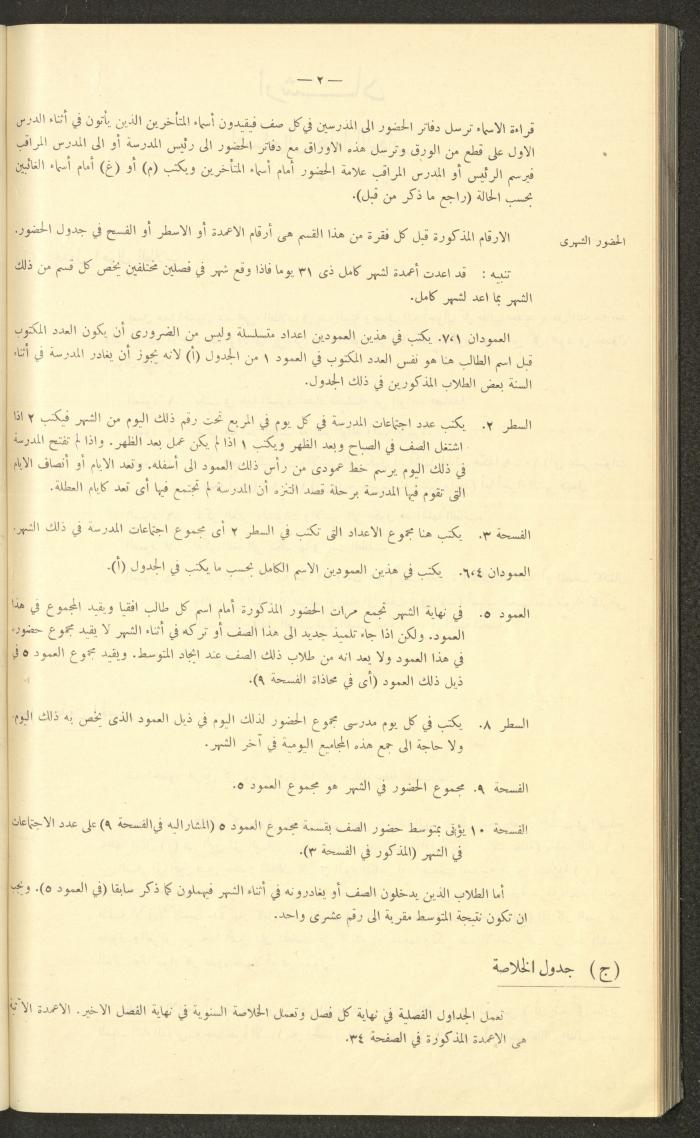 — ٢ —
قراءة الاسماء ترسل دفاتر الحضور الى المدرسين في كل صف فيقيدون أسماء المتأخرين الذين يأتون في أثناء الدرس
الاول على قطع من الورق وترسل هذه الاوراق مع دفاتر الحضور الى رئيس المدرسة أو الى المدرس المراقب
فيرسم الرئيس أو المدرس المراقب علامة الحضور أمام أسماء المتأخرين ويكتب (م) أو (غ) أمام أسماء الغائبين
بحسب الحالة (راجع ما ذكر من قبل).
الحضور الشهرى
الارقام المذكورة قبل كل فقرة من هذا القسم هى أرقام الاعمدة أو الاسطر أو الفسح في جدول الحضور.
تنبيه : قد اعدت أعمدة لشهر كامل ذى ٣١ يوما فاذا وقع شهر في فصلين مختلفين يخص كل قسم من ذلك
الشهر بما اعد لشهر كامل.
العمودان ٧،١. يكتب في هذين العمودين اعداد متسلسلة وليس من الضرورى أن يكون العدد المكتوب
قبل اسم الطالب هنا هو نفس العدد المكتوب في العمود ١ من الجدول (أ) لانه يجوز أن يغادر المدرسة في أثناء
السنة بعض الطلاب المذكورين في ذلك الجدول.
السطر ٢. يكتب عدد اجتماعات المدرسة في كل يوم في المربع تحت رقم ذلك اليوم من الشهر فيكتب ٢ اذا
اشتغل الصف في الصباح وبعد الظهر ويكتب ١ اذا لم يكن عمل بعد الظهر. واذا لم تفتح المدرسة
في ذلك اليوم يرسم خط عمودى من رأس ذلك العمود الى أسفله. وتعد الايام أو أنصاف الايام
التى تقوم فيها المدرسة برحلة قصد التنزه أن المدرسة لم تجتمع فيها أى تعد كايام العطلة.
الفسحة ٣. يكتب هنا مجموع الاعداد التى تكتب في السطر ٢ أى مجموع اجتماعات المدرسة في ذلك الشهر.
العمودان ٦،٤. يكتب في هذين العمودين الاسم الكامل بحسب ما يكتب في الجدول (أ).
العمود ٥. في نهاية الشهر تجمع مرات الحضور المذكورة أمام اسم كل طالب افقيا ويقيد المجموع في هذا
العمود. ولكن اذا جاء تلميذ جديد الى هذا الصف أو تركه في أثناء الشهر لا يقيد مجموع حضوره
في هذا العمود ولا يعد انه من طلاب ذلك الصف عند ايجاد المتوسط. ويقيد مجموع العمود ٥ في
ذيل ذلك العمود (أى في محاذاة الفسحة ٩).
السطر ٨. يكتب في كل يوم مدرسى مجموع الحضور لذلك اليوم في ذيل العمود الذى يخص به ذلك اليوم.
ولا حاجة الى جمع هذه المجاميع اليومية في آخر الشهر.
الفسحة ٩. مجموع الحضور في الشهر هو مجموع العمود ٥.
الفسحة ١٠ يؤتى بمتوسط حضور الصف بقسمة مجموع العمود ٥ (المشار اليه في الفسحة ٩) على عدد الاجتماعات
في الشهر (المذكور في الفسحة ٣).
أما الطلاب الذين يدخلون الصف أو يغادرونه في أثناء الشهر فيهملون كما ذكر سابقا (في العمود ٥). ويجب
ان تكون نتيجة المتوسط مقربة الى رقم عشرى واحد.
(ج) جدول الخلاصة
تعمل الجداول الفصلية في نهاية كل فصل وتعمل الخلاصة السنوية في نهاية الفصل الاخير. الاعمدة الآتية
هى الاعمدة المذكورة في الصفحة ٣٤.